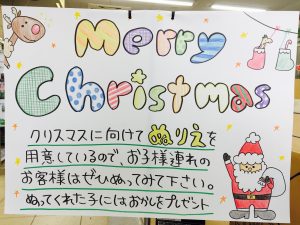 Merry
Christmas
クリスマスに向けてぬりえを
用意しているので、お子様連れの
お客様はぜひぬってみて下さい。
ぬってくれた子にはおかしをプレゼント